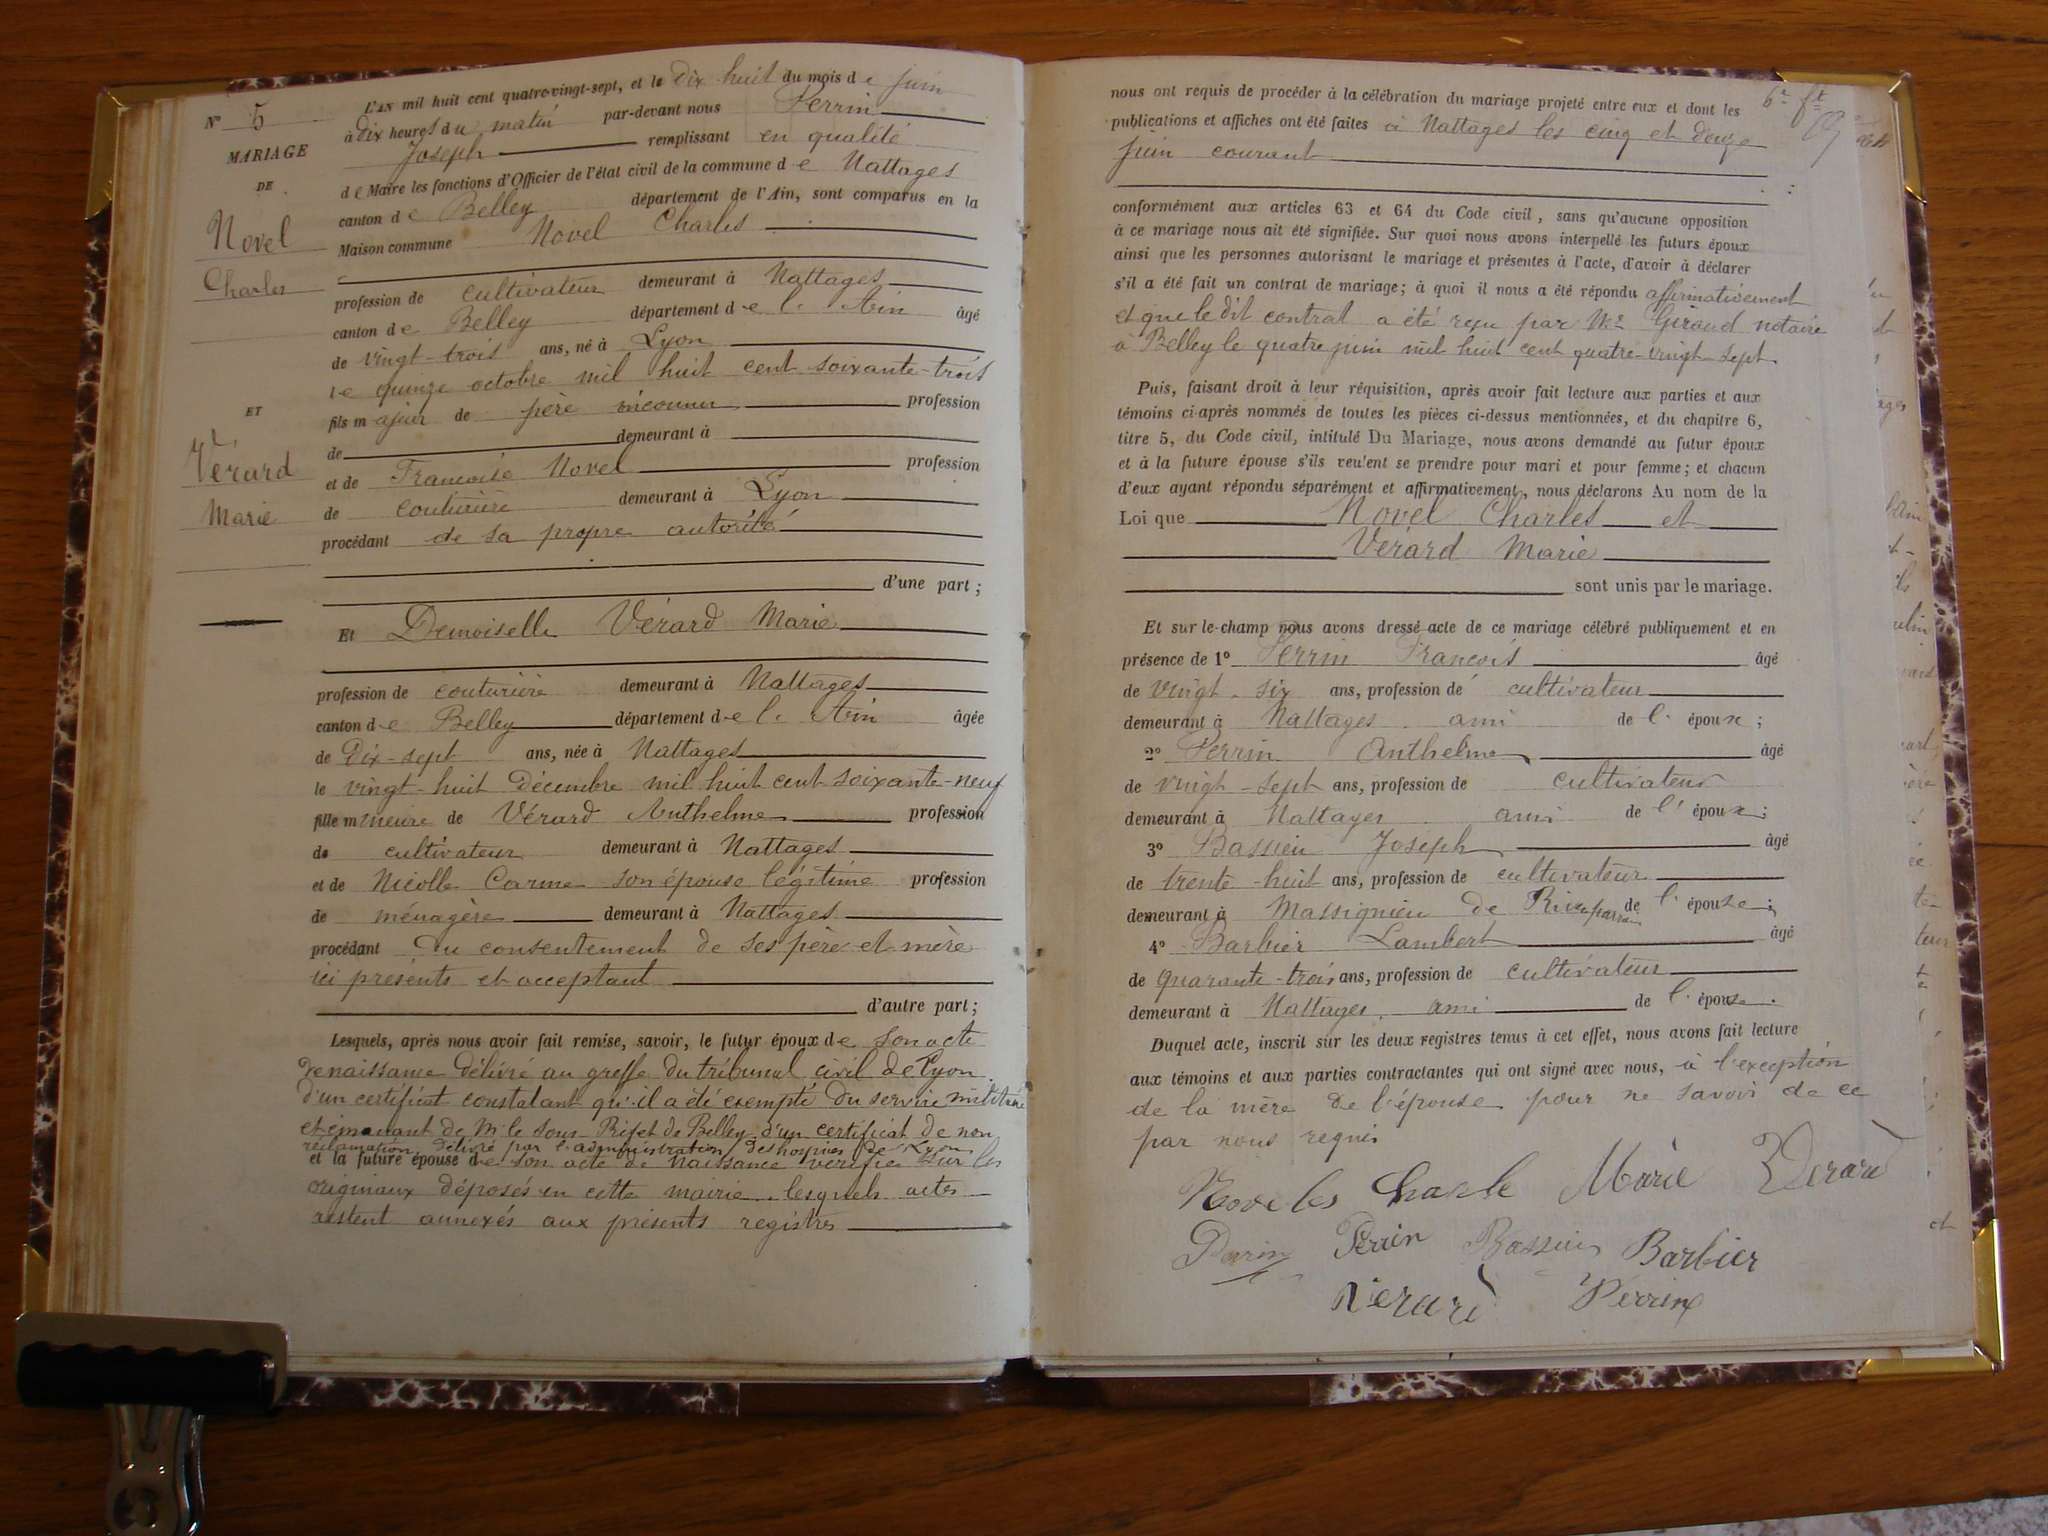 N° 5
MARIAGE
DE
Novel
Charles
ET
Vérard
Marie
L'AN mil huit cent quatre-vingt-sept, et le dix huit du mois de juin
à dix heures du matin par-devant nous Perrin
Joseph remplissant en qualité
de Maire les fonctions d'Officier de l'état civil de la commune de Nattages
canton de Belley département de l'Ain, sont comparus en la
Maison commune Novel Charles
profession de cultivateur demeurant à Nattages
canton de Belley département de l'Ain âgé
de vingt-trois ans, né à Lyon
le quinze octobre mil huit cent soixante-trois
fils majeur de père inconnu profession
de demeurant à
et de Françoise Novel profession
de couturière demeurant à Lyon
procédant de sa propre autorité
d'une part;
Et Demoiselle Vérard Marie
profession de couturière demeurant à Nattages
canton de Belley département de l'Ain âgée
de Dix-sept ans, née à Nattages
le vingt-huit Décembre mil huit cent soixante-neuf
fille mineure de Vérard Anthelme profession
de cultivateur demeurant à Nattages
et de Nicolle Carme son épouse légitime profession
de ménagère demeurant à Nattages
procédant du consentement de ses père et mère
ici présents et acceptant
d'autre part;
Lesquels, après nous avoir fait remise, savoir, le futur époux de son acte
de naissance délivré au greffe du tribunal civil de Lyon
d'un certificat constatant qu'il a été exempté du service militaire
et émanant de Mr le Sous-Préfet de Belley d'un certificat de non
réclamation délivré par l'administration des hospices de Lyon
et la future épouse de son acte de naissance vérifié sur les
originaux déposés en cette mairie lesquels actes
restent annexés aux présents registres
nous ont requis de procéder à la célébration du mariage projeté entre eux et dont les
publications et affiches ont été faites à Nattages les cinq et douze
juin courant
conformément aux articles 63 et 64 du Code civil, sans qu'aucune opposition
à ce mariage nous ait été signifiée. Sur quoi nous avons interpellé les futurs époux
ainsi que les personnes autorisant le mariage et présentes à l'acte, d'avoir à déclarer
s'il a été fait un contrat de mariage; à quoi il nous a été répondu affirmativement
et que le dit contrat a été reçu par Me Giraud notaire
à Belley le quatre juin mil huit cent quatre-vingt-sept
Puis, faisant droit à leur réquisition, après avoir fait lecture aux parties et aux
témoins ci-après nommés de toutes les pièces ci-dessus mentionnées, et du chapitre 6,
titre 5, du Code civil, intitulé Du Mariage, nous avons demandé au futur époux
et à la future épouse s'ils veulent se prendre pour mari et pour femme; et chacun
d'eux ayant répondu séparément et affirmativement, nous déclarons Au nom de la
Loi que Novel Charles et
Vérard Marie
sont unis par le mariage.
Et sur-le-champ nous avons dressé acte de ce mariage célébré publiquement et en
présence de 1° Perrin François âgé
de vingt-six ans, profession de cultivateur
demeurant à Nattages ami de l'époux;
2° Perrin Anthelme âgé
de vingt-sept ans, profession de cultivateur
demeurant à Nattages ami de l'époux;
3° Bassieu Joseph âgé
de trente-huit ans, profession de cultivateur
demeurant à Massignieu de Rives parrain de l'épouse;
4° Barbier Lambert âgé
de quarante-trois ans, profession de cultivateur
demeurant à Nattages, ami de l'épouse.
Duquel acte, inscrit sur les deux registres tenus à cet effet, nous avons fait lecture
aux témoins et aux parties contractantes qui ont signé avec nous, à l'exception
de la mère de l'épouse pour ne savoir de ce
par nous requis
Charle Marie Verard
Perrin Perrin Bassieu Barbier
Verard Perrin